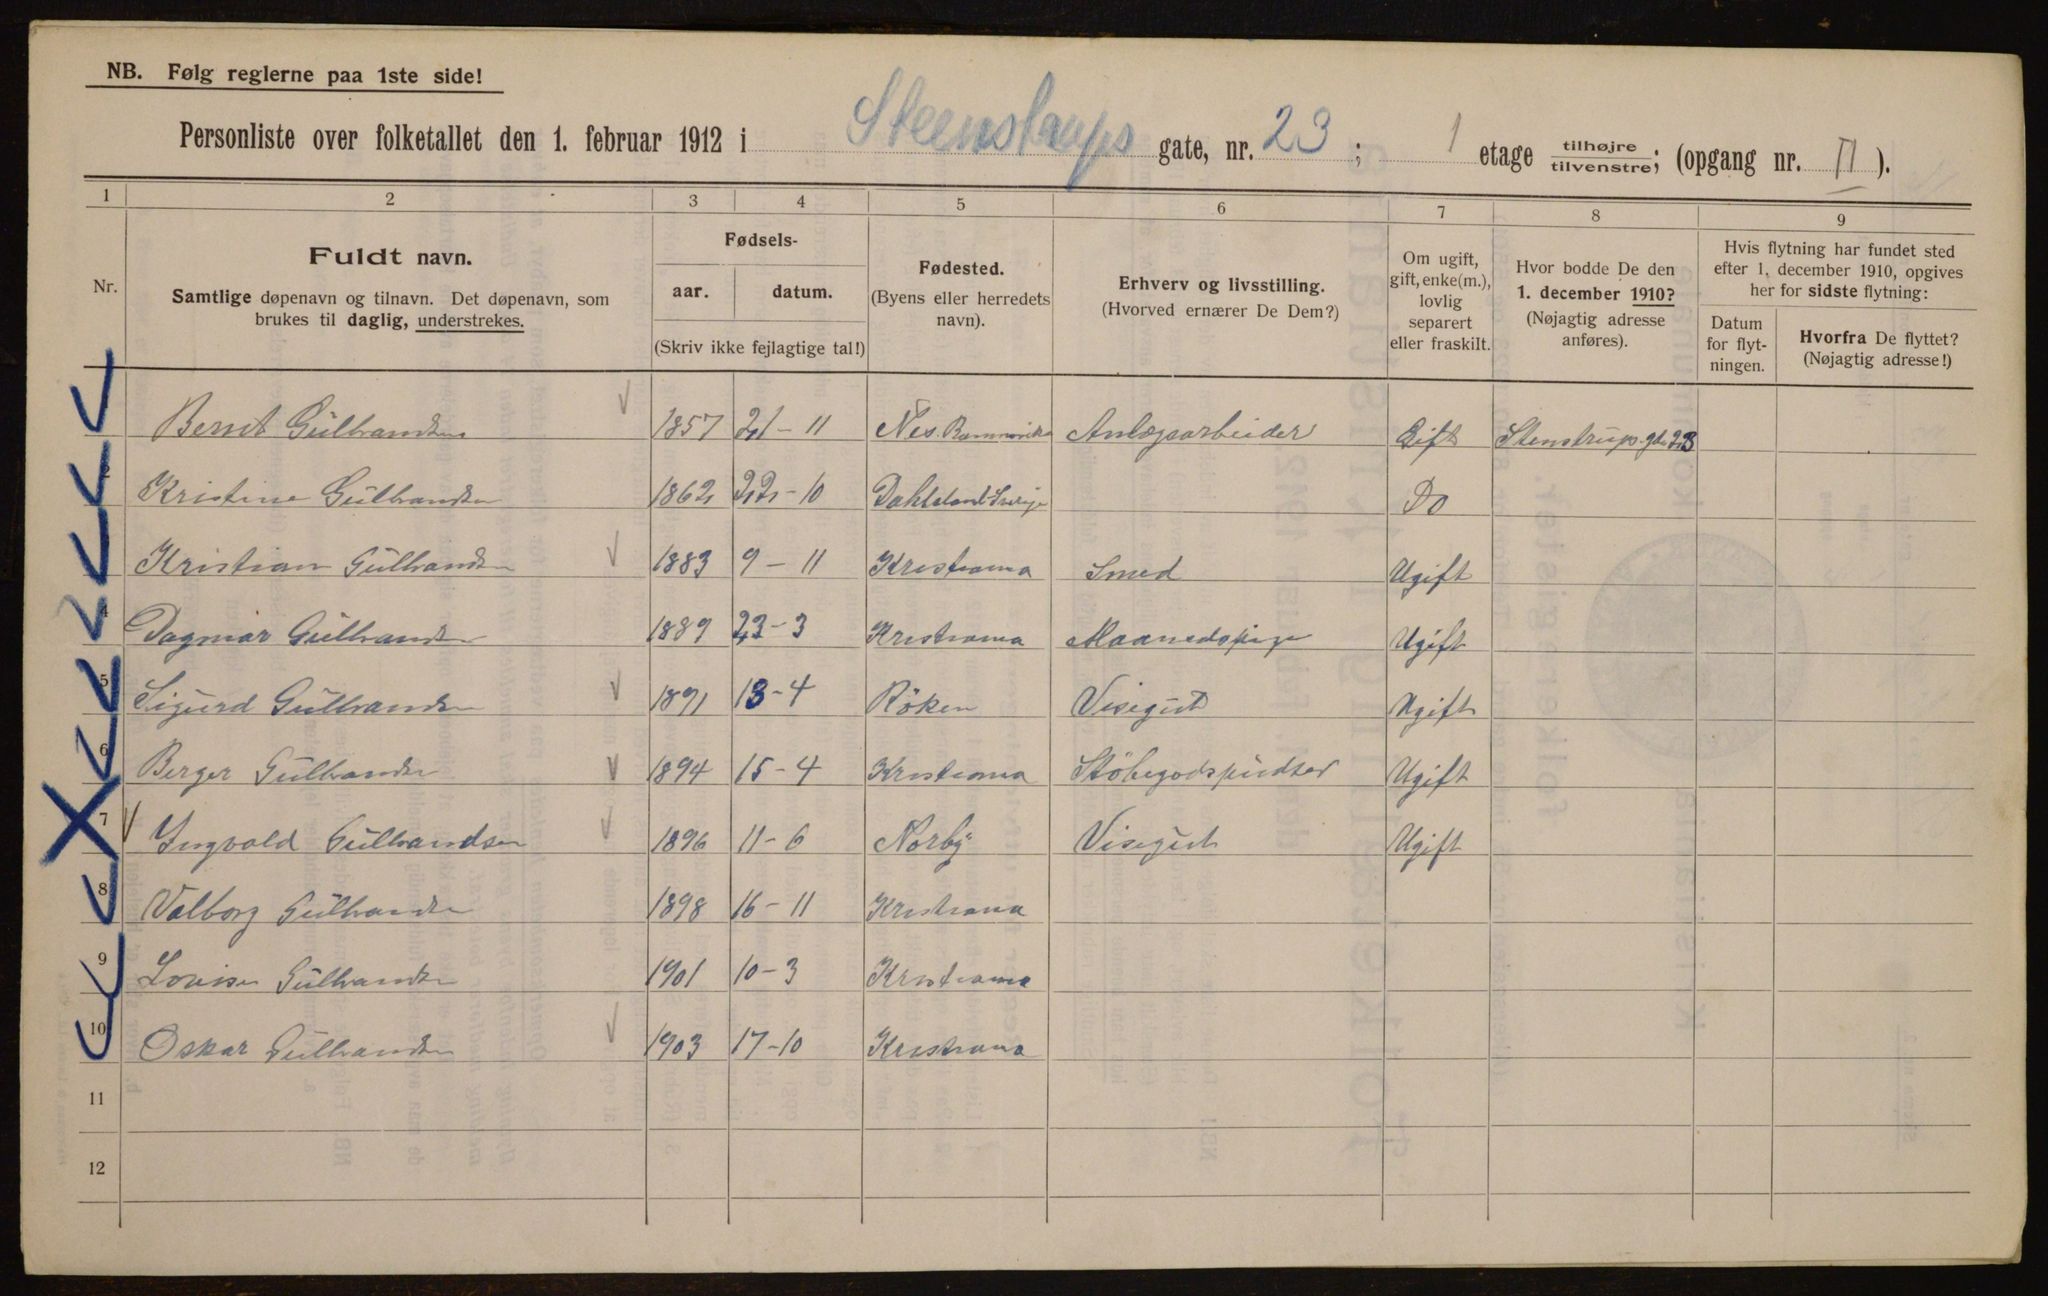 NB. Følg reglerne paa 1ste side!
Personliste over folketallet den 1. februar 1912 i Steenstrups gate, nr. 23; 1 etage tilhøjre tilvenstre; (opgang nr. II).
1 2 3 4 5 6 7 8 9
Nr.
Fuldt navn.
Samtlige døpenavn og tilnavn. Det døpenavn, som
brukes til daglig, understrekes.
Fødsels-
aar. datum.
(Skriv ikke fejlagtige tal!)
Fødested.
(Byens eller herredets
navn).
Erhverv og livsstilling.
(Hvorved ernærer De Dem?)
Om ugift,
gift, enke(m.),
lovlig
separert
eller fraskilt.
Hvor bodde De den
1. december 1910?
(Nøjagtig adresse
anføres).
Hvis flytning har fundet sted
efter 1. december 1910, opgives
her for sidste flytning:
Datum
for flyt-
ningen.
Hvorfra De flyttet?
(Nøjagtig adresse!)
Bernt Gulbrandsen 1857 21-11 Nes. Romerike Anlegsarbeider Gift Stenstrups gde 23
2 Kristine Gulbrandsen 1862 22-10 Dahlsland Sverige Do
Kristian Gulbrandsen 1883 9-11 Kristiania Smed Ugift
4 Dagmar Gulbrandsen 1889 23-3 Kristiania Maanedspige Ugift
5 Sigurd Gulbrandsen 1891 13-4 Röken Visegut Ugift
6 Berger Gulbrandsen 1894 15-4 Kristiania Stöbegodspudser Ugift
7 Ingvald Gulbrandsen 1896 11-6 Norby Visegut Ugift
8 Valborg Gulbrandsen 1898 16-11 Kristiania
9 Lovise Gulbrandsen 1901 10-3 Kristiania
10 Oskar Gulbrandsen 1903 17-10 Kristiania
11
12